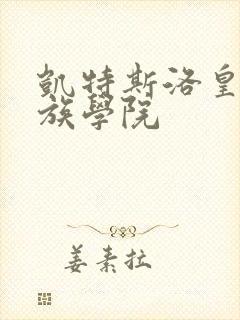 凱特斯洛皇
族學院
姜素拉